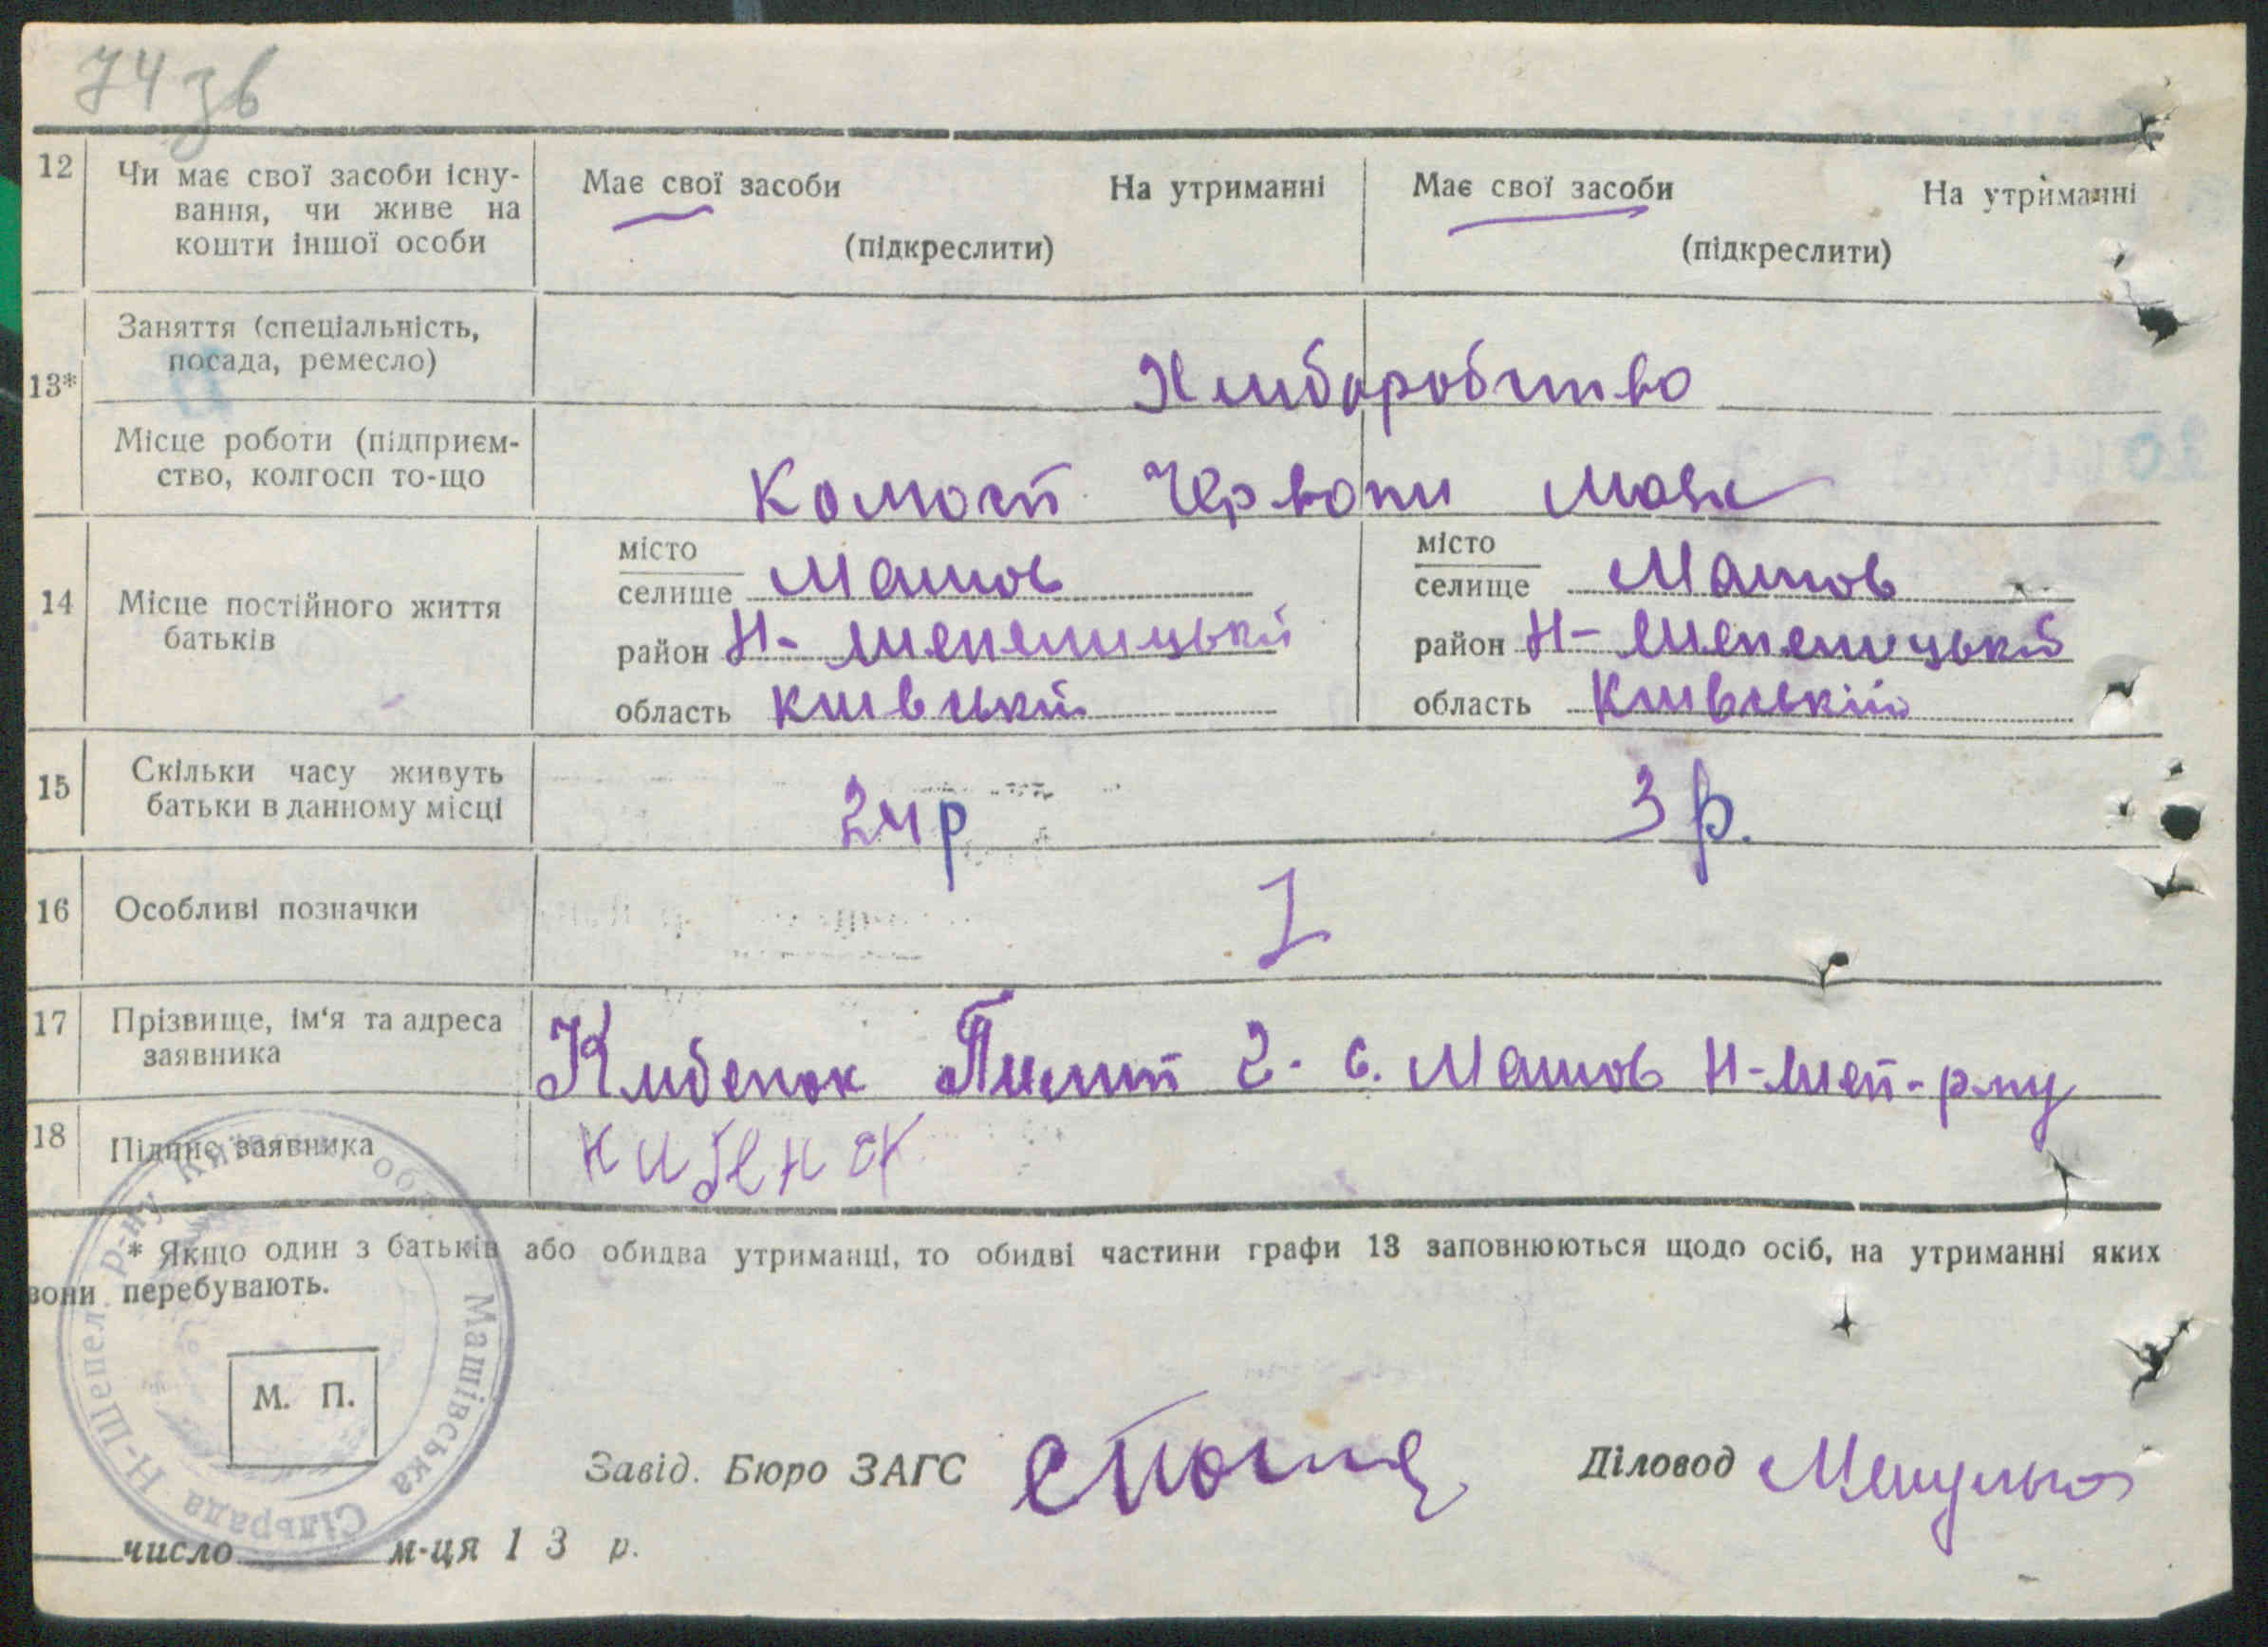 74 зв
12 Чи має свої засоби існу- Має свої засоби На утриманні Має свої засоби На утриманні
вання, чи живе на
кошти іншої особи (підкреслити) (підкреслити)
Заняття (спеціальність,
посада, ремесло) Хлиборобство
13*
Місце роботи (підприєм-
ство, колгосп то-що Червони Маяк
місто місто
селище Машов селище Машов
14 Місце постійного життя
батьків район Н-Шепелицький район Н-Шепелицький
область Киівський область Киівський
15 Скільки часу живуть
батьки в данному місці 24 р 3 р.
16 Особливі позначки
17 Прізвище, ім‘я та адреса
заявника Кибенок Пилип с. Машов Н-Шеп-р-ну
18 Підпис заявника Кибенок
* Якщо один з батьків або обидва утриманці, то обидві частини графи 13 заповнюються щодо осіб, на утриманні яких
вони перебувають.
Машівська Сільрада Н-Шепел. р-ну Київськ. обл.
М. П.
Завід. Бюро ЗАГС Діловод
число м-ця 1 3 р.